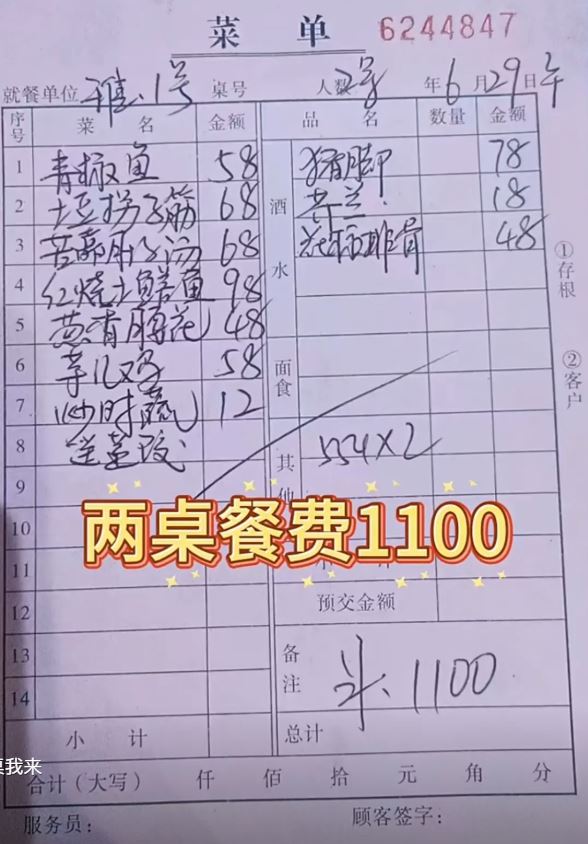 菜 单
6244847
就餐单位 雅1号 桌号 人数 2号 年6月29日 午
序号 菜 名 金额 品 名 数量 金额
1 青椒鱼 58 猪脚 78
2 土豆拐子筋 68 酒 18
3 肚子汤 68 排骨 48
4 红烧土鳝鱼 98 水
5 48
6 58 面食
7 炒时蔬 12
8 送
554×2
9 其他
10
两桌餐费1100
11
12 预交金额
13 备注 1100
14
小 计 总计
合计（大写） 仟 佰 拾 元 角 分
服务员： 顾客签字：
①存根
②客户
我来